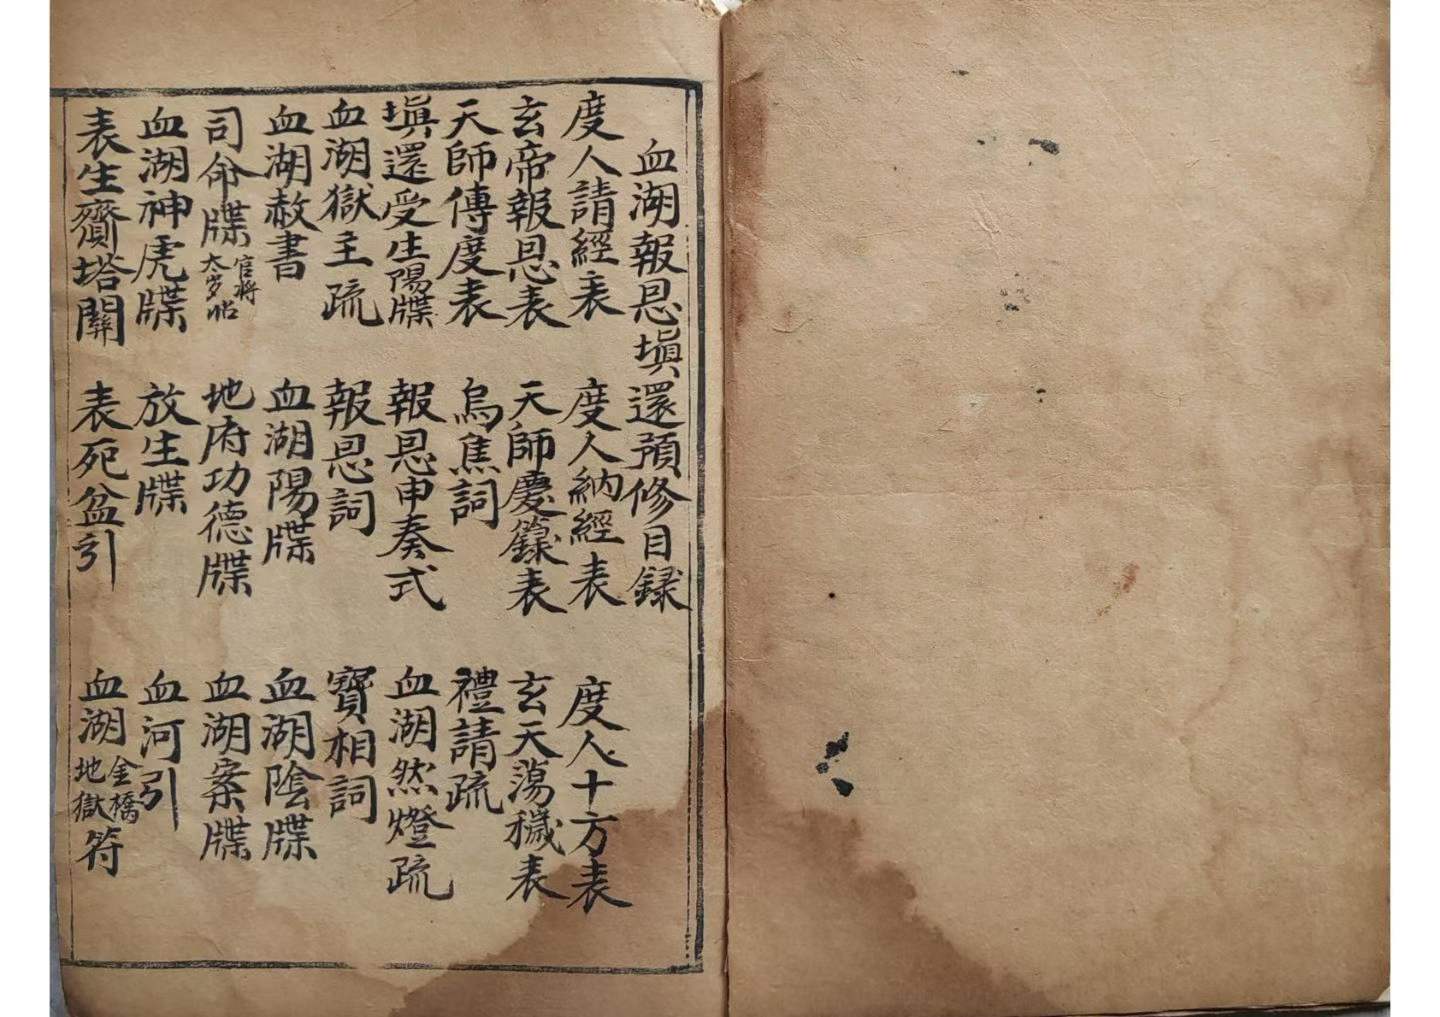 血湖報恩塡還預修目録
度人請經表 度人納經表 度人十方表
玄帝報恩表 天師慶籙表 玄天蕩穢表
天師傳度表 烏焦詞 禮請疏
塡還受生陽牒 報恩申奏式 血湖然燈疏
血湖獄主疏 報恩詞 寶相詞
血湖赦書 血湖陽牒 血湖陰牒
司命牒 官將 太岁帖 地府功德牒 血湖案牒
血湖神虎牒 放生牒 血河引
表生齋塔關 表死盆引 血湖金橋地獄符